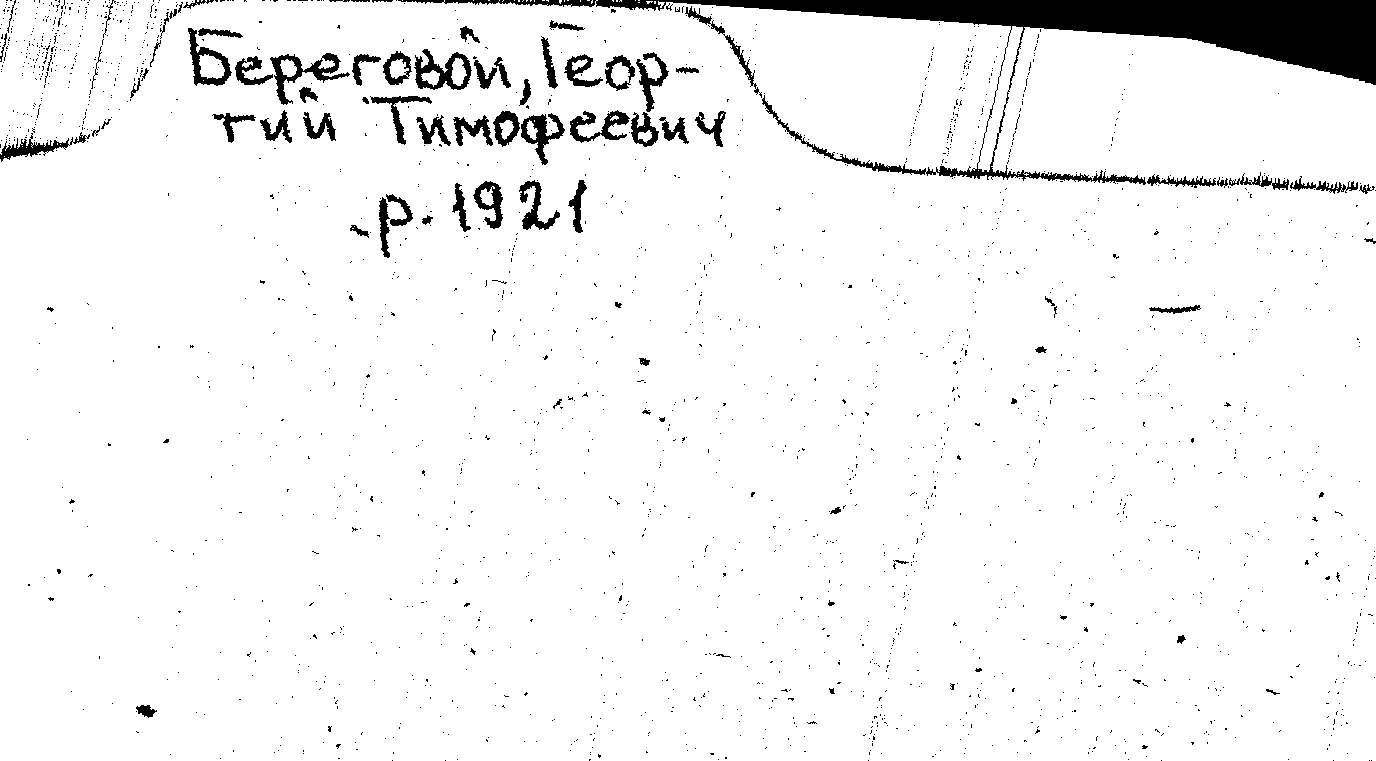 Береговой, Геор-
гий Тимофеевич
р. 1921